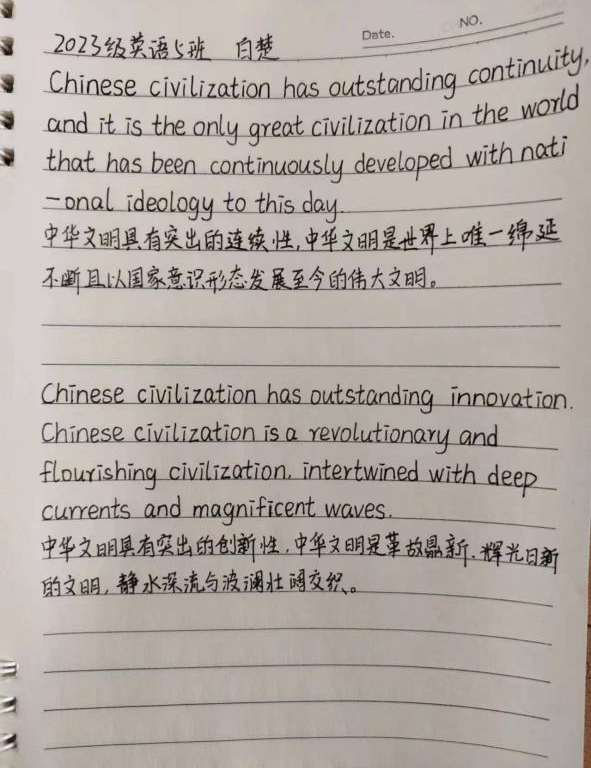 NO.
Date.
2023级英语5班 白楚
Chinese civilization has outstanding continuity,
and it is the only great civilization in the world
that has been continuously developed with nati
-onal ideology to this day.
中华文明具有突出的连续性,中华文明是世界上唯一绵延
不断且以国家意识形态发展至今的伟大文明。
Chinese civilization has outstanding innovation.
Chinese civilization is a revolutionary and
flourishing civilization, intertwined with deep
currents and magnificent waves.
中华文明具有突出的创新性,中华文明是革故鼎新、辉光日新
的文明,静水深流与波澜壮阔交织。